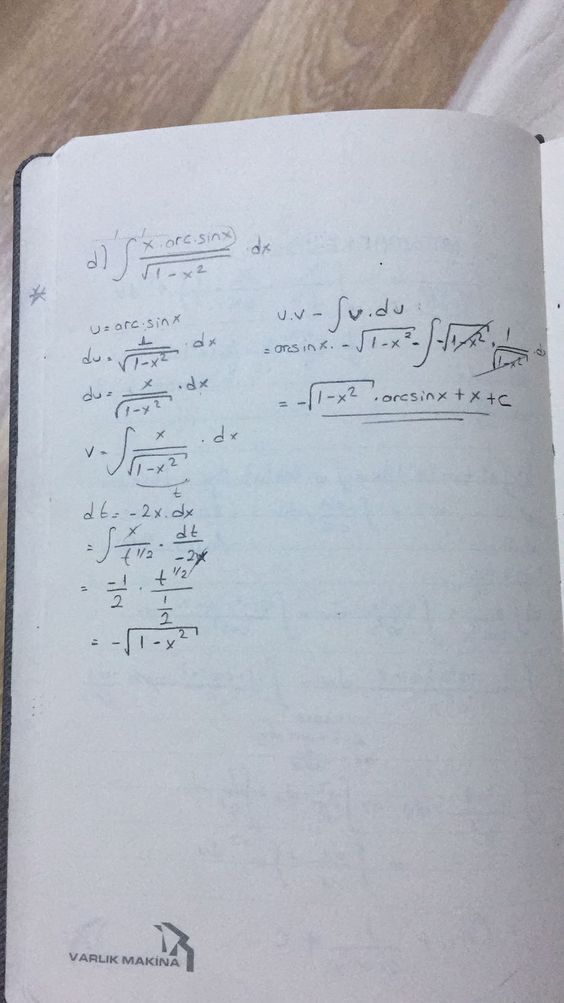 d) ∫ x.arc.sinx / √1-x² .dx
u=arc.sinx
du= 1/√1-x² .dx
du= x/√1-x² .dx
v= ∫ x/√1-x² .dx
t
dt= -2x.dx
= ∫ x/t^1/2 . dt/-2x
= -1/2 . t^1/2 / 1/2
= -√1-x²
u.v - ∫v.du
= arcsinx. -√1-x² - ∫-√1-x² . 1/√1-x² .d
= -√1-x² .arcsinx+x+c
VARLIK MAKİNA